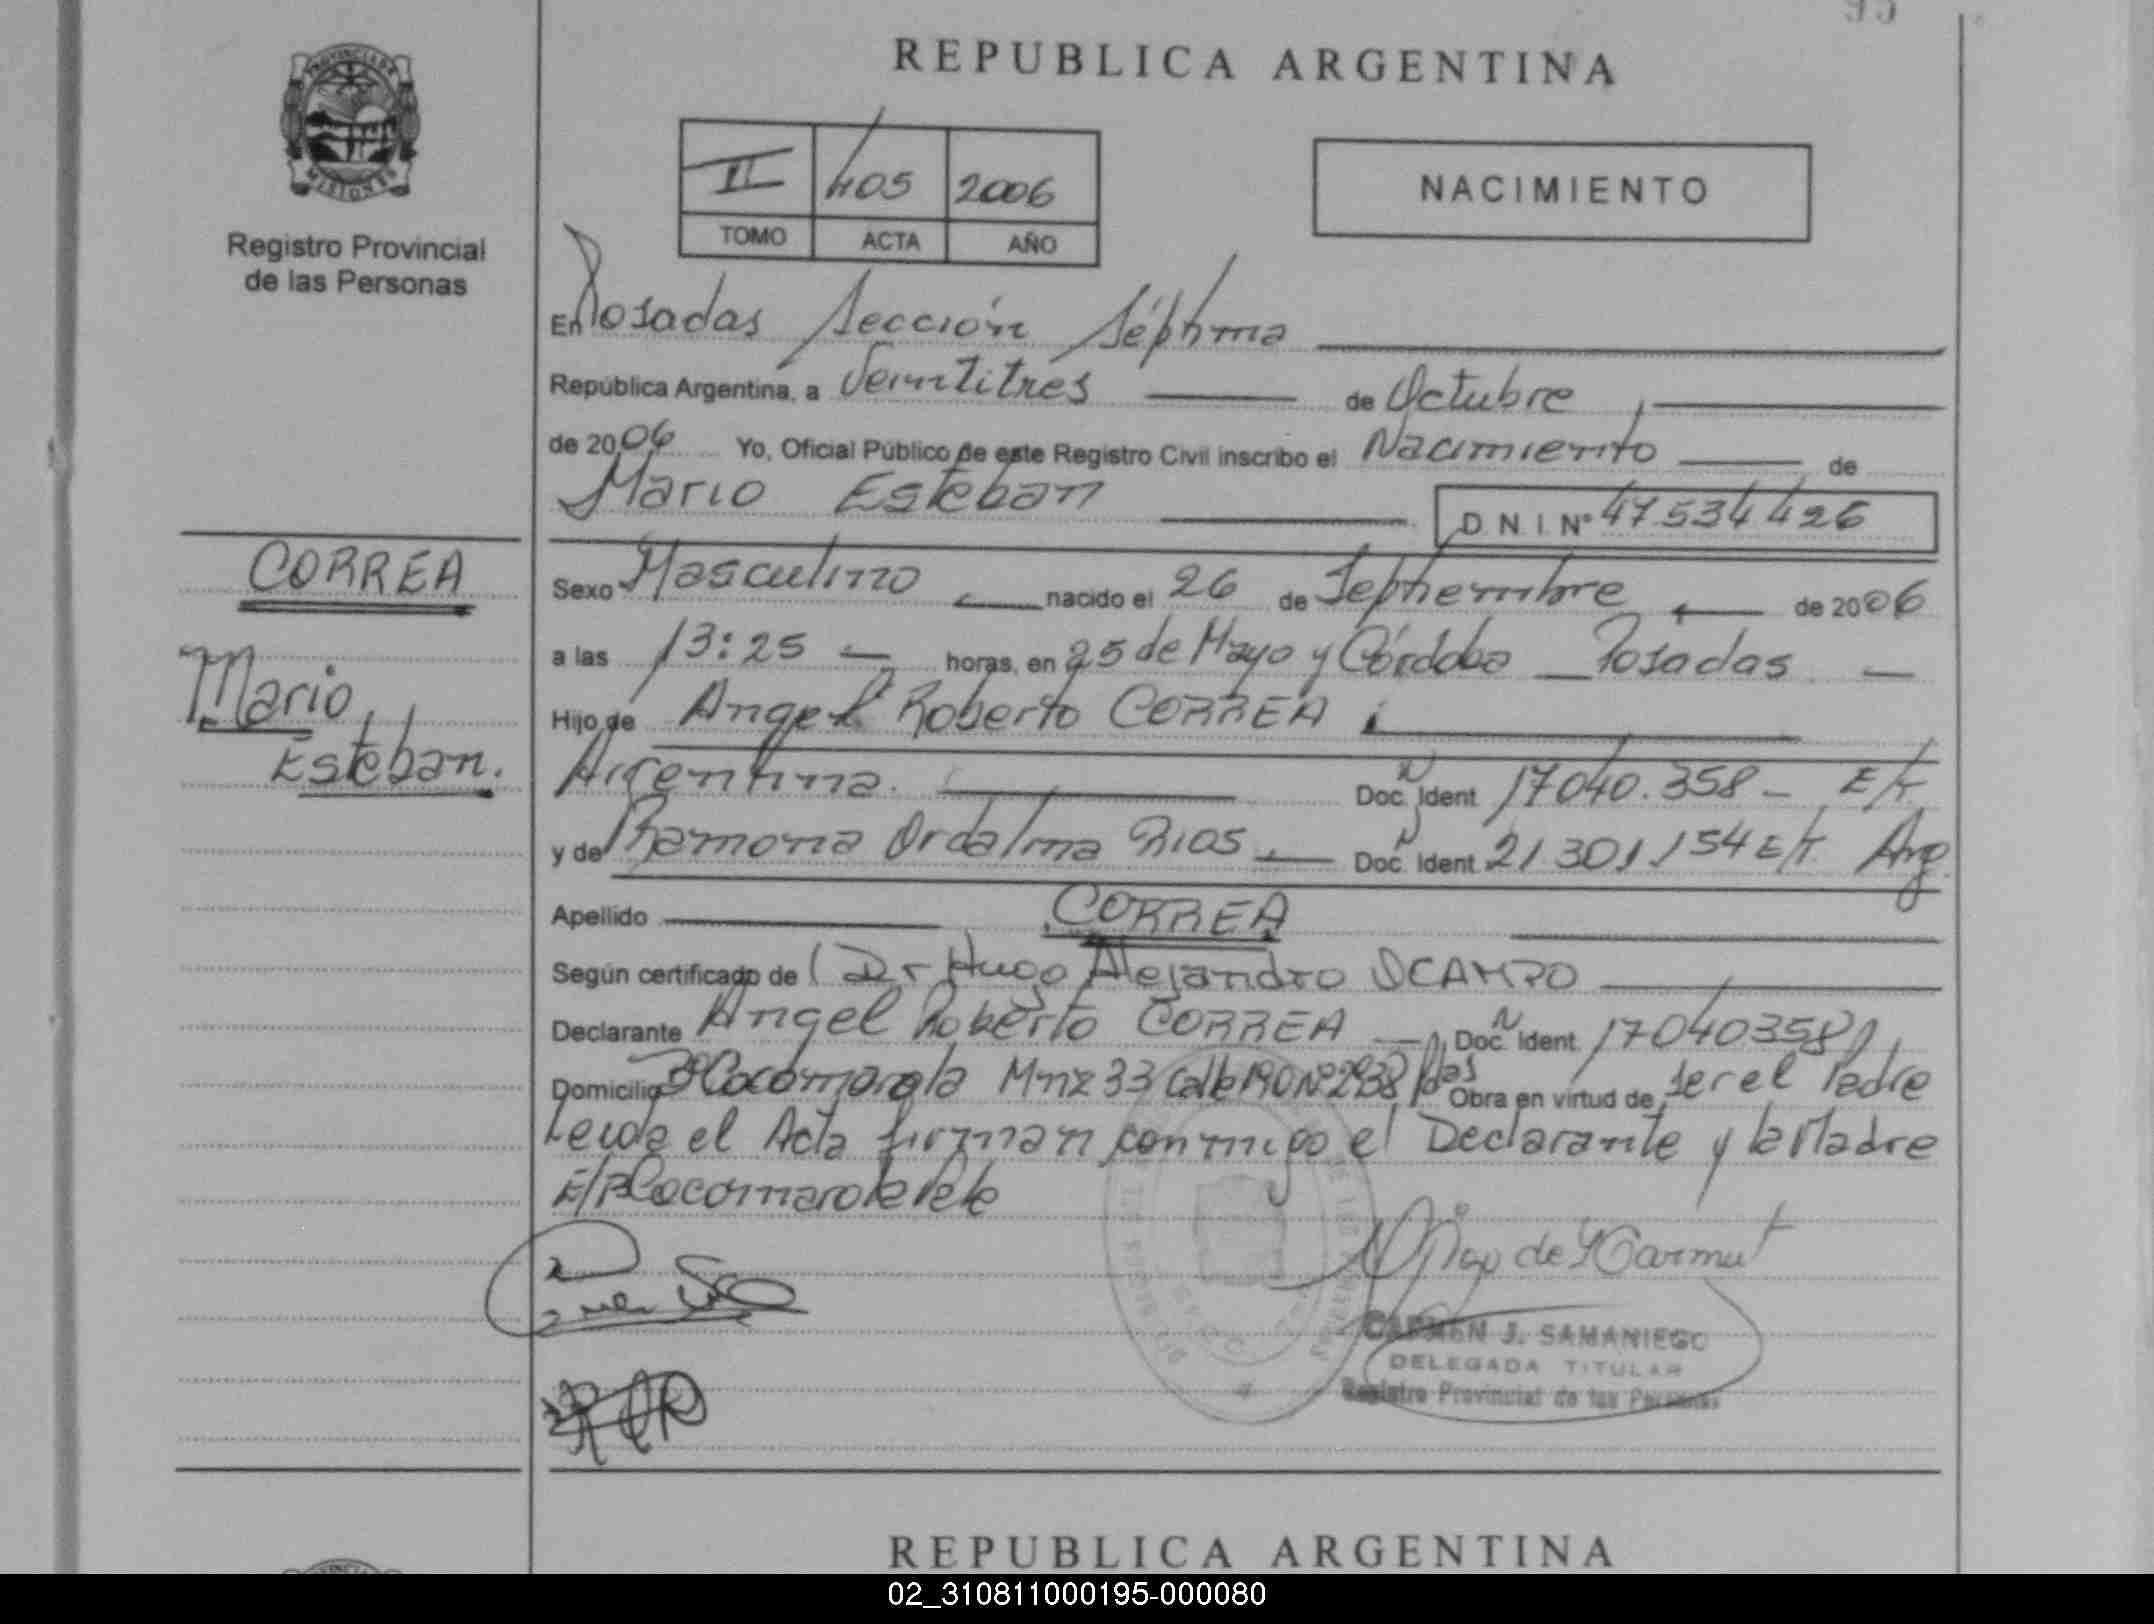 REPUBLICA ARGENTINA
PROVINCIA DE
MISIONES
Registro Provincial
de las Personas
II 405 2006
TOMO ACTA AÑO
NACIMIENTO
En Posadas Sección Séptima
República Argentina, a Veintitres de Octubre
de 2006 Yo, Oficial Público de este Registro Civil inscribo el Nacimiento de
Mario Esteban D.N.I.N° 47534426
CORREA
Mario
Esteban.
Sexo Masculino nacido el 26 de Septiembre de 2006
a las 13:25 horas, en 25 de Mayo y Córdoba _ Posadas
Hijo de Angel Roberto CORREA
Argentina. Doc. Ident 17040.358 - E/T
y de Ramona Ordalma Rios Doc. Ident. 21301154 E/T Arg
Apellido CORREA
Según certificado de Dr Hugo Alejandro OCAMPO
Declarante Angel Roberto CORREA Doc. Ident. 17040358
Domicilio B° Cocomarola Mnz 33 Calle 190 N° 2938 Pdas Obra en virtud de ser el Padre
Leida el Acta firman conmigo el Declarante y la Madre
CARMEN J. SAMANIEGO
DELEGADA TITULAR
Registro Provincial de las Personas
REPUBLICA ARGENTINA
02_310811000195-000080